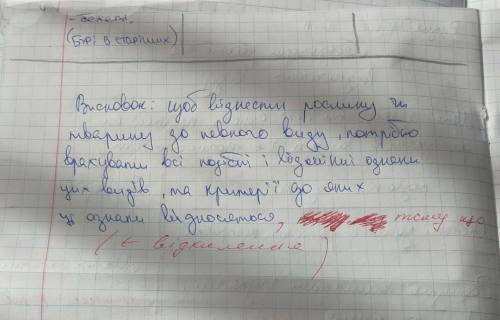 (Бурі в старіших)
Висновок: щоб віднести рослину чи
тварину до певного виду, потрібно
врахувати всі подібні і відмінні ознаки
цих видів, та критерії до яких
ці ознаки відносяться, тому що
(є відхилення)